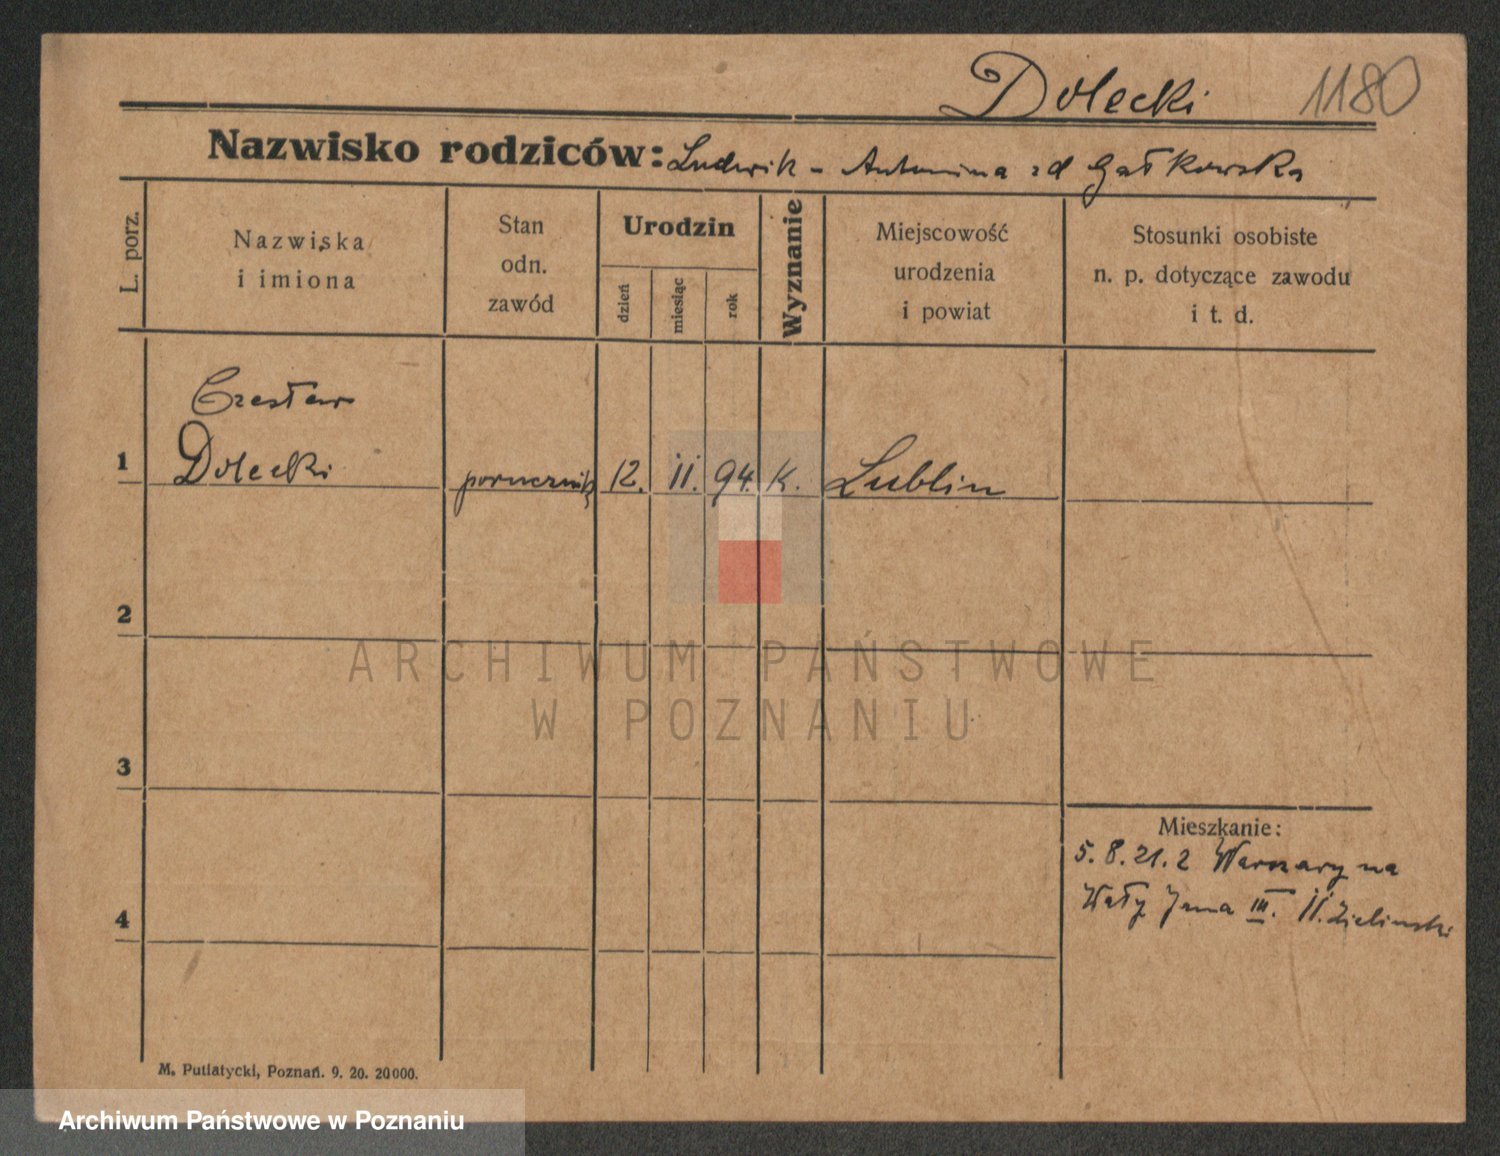 Dolecki 1180
Nazwisko rodziców: Ludwik - Antonina zd Gałkowska
L. porz.
Nazwiska
i imiona
Stan
odn.
zawód
Urodzin
dzień
miesiąc
rok
Wyznanie
Miejscowość
urodzenia
i powiat
Stosunki osobiste
n. p. dotyczące zawodu
i t. d.
Czesław
1 Dolecki porucznik 12. 11. 94. K. Lublin
2
ARCHIWUM PAŃSTWOWE
W POZNANIU
3
Mieszkanie:
5.8.21. z Warszawy na
4 Wały Jana III. 11. Zieliński
M. Putiatycki, Poznań. 9. 20. 20000.
Archiwum Państwowe w Poznaniu